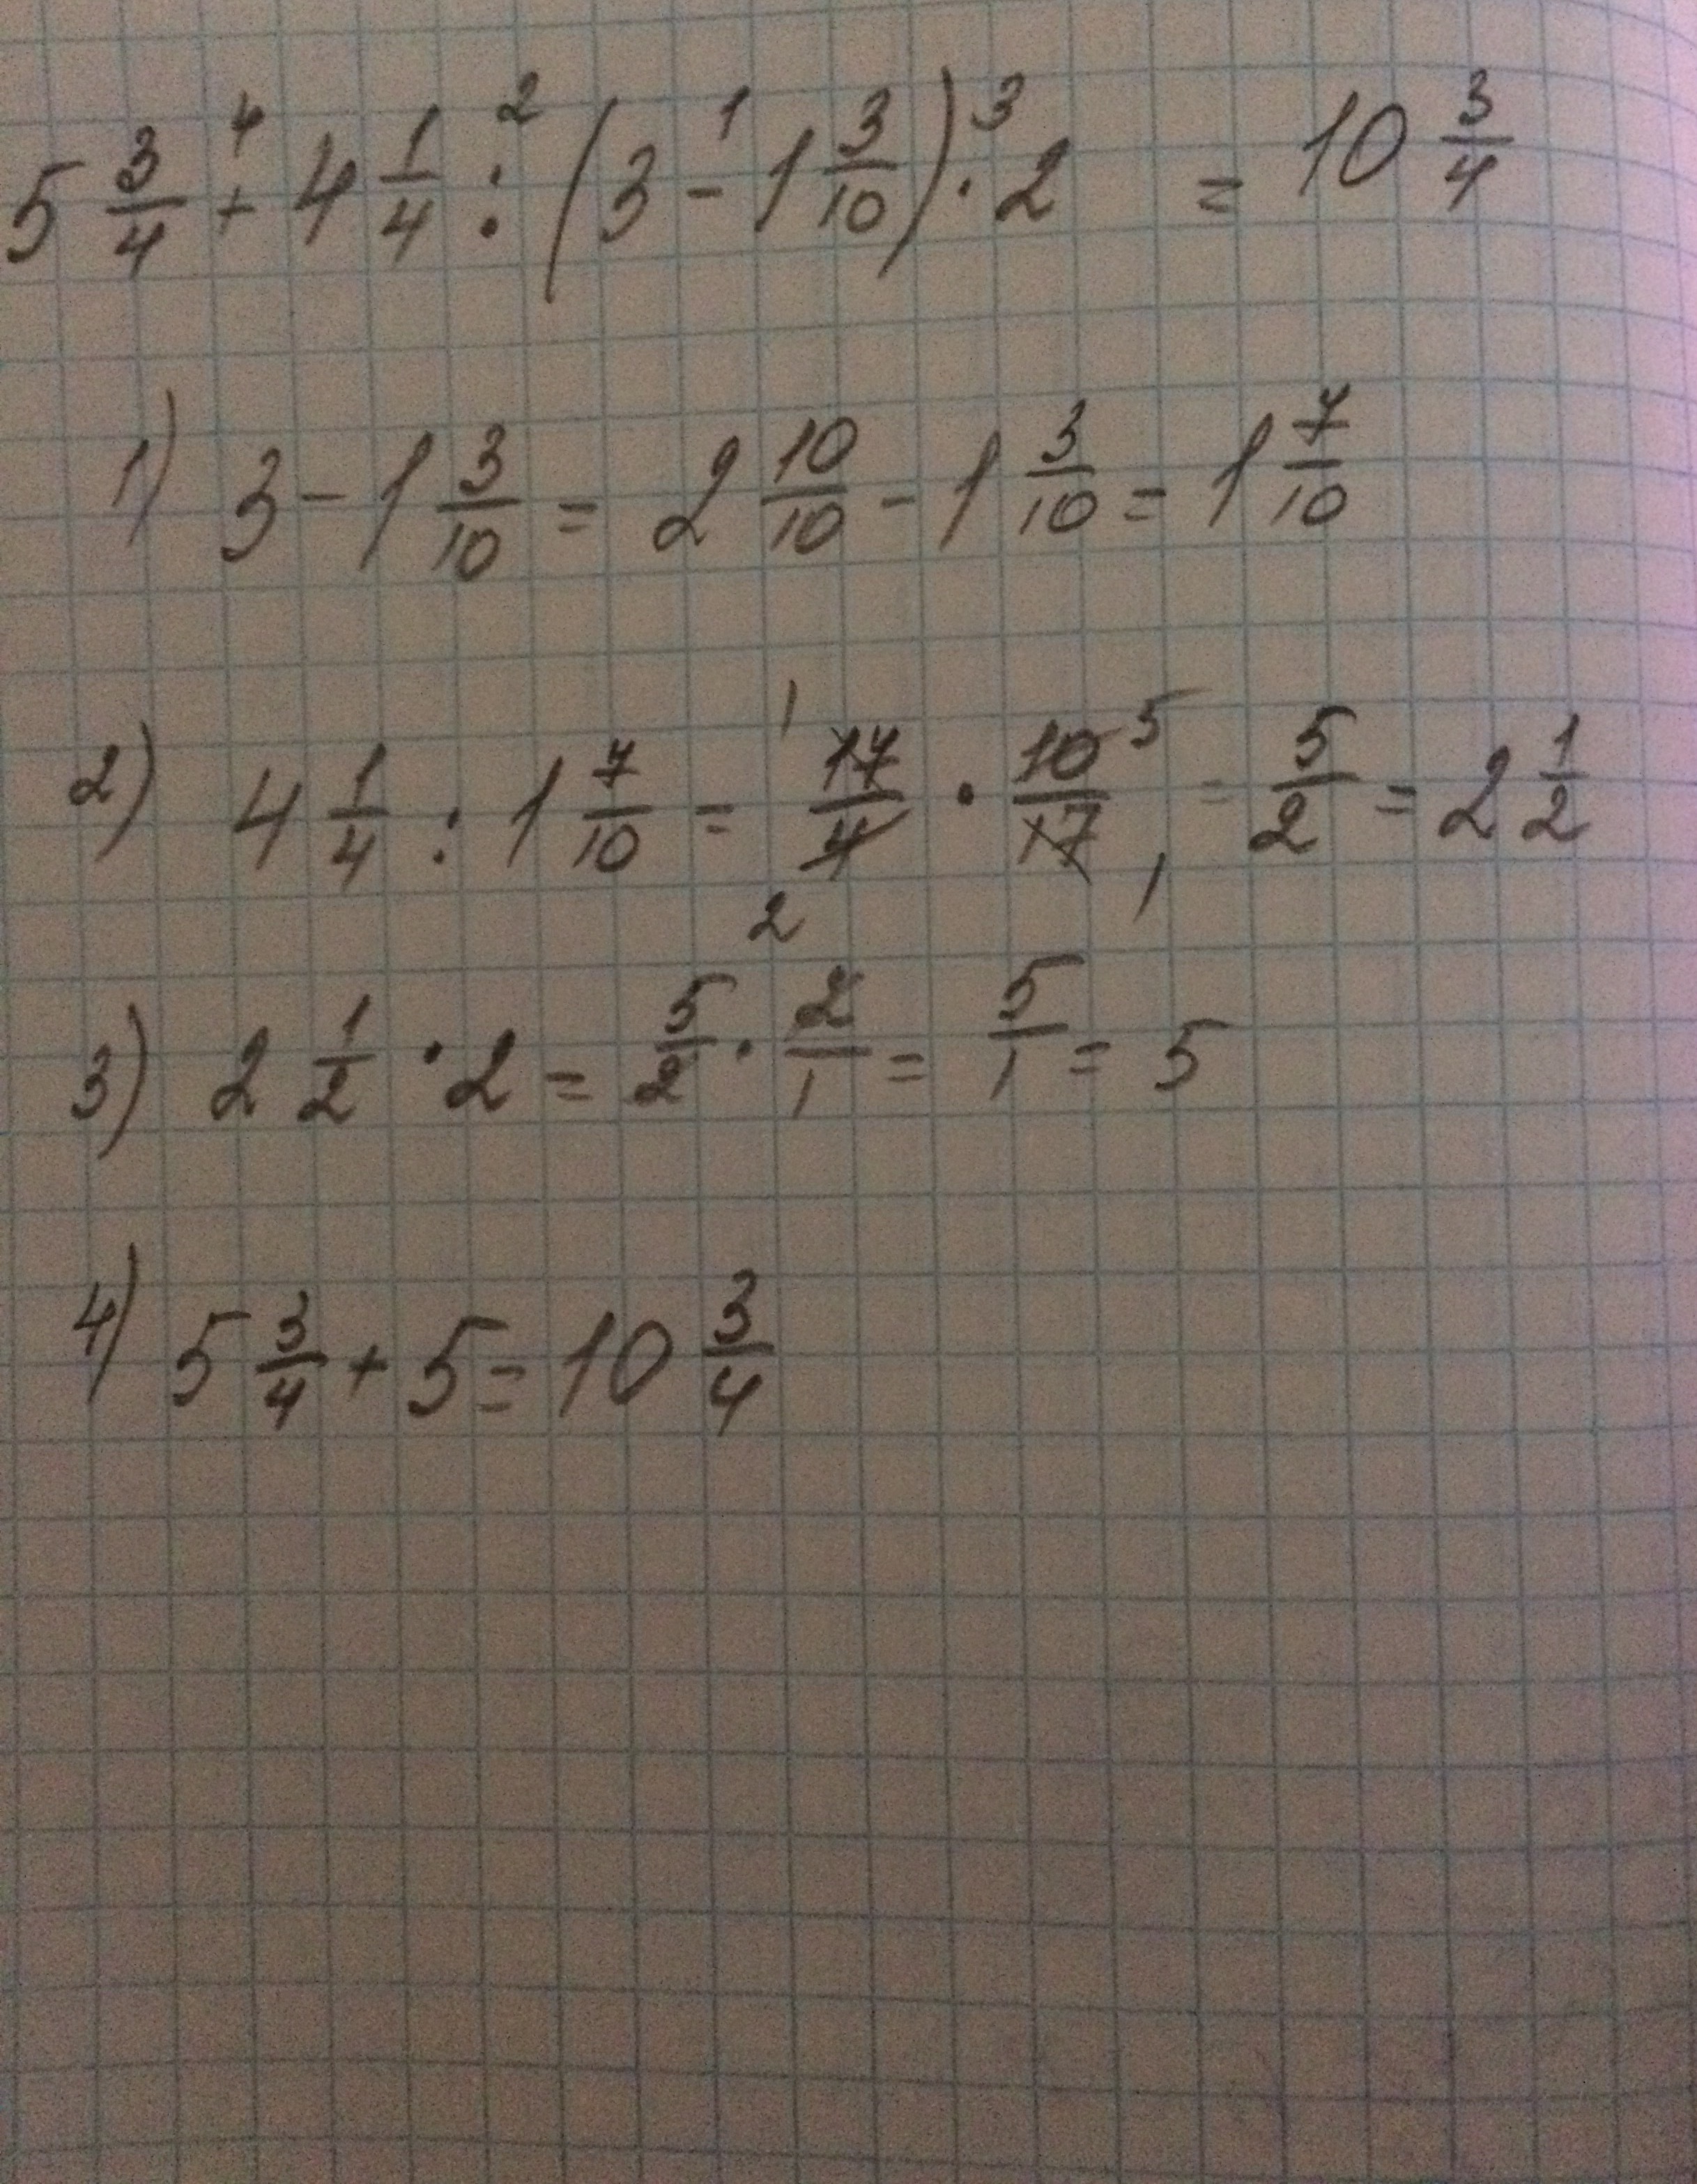 5 3/4 + 4 1/4 : (3 - 1 3/10) · 2 = 10 3/4
1) 3 - 1 3/10 = 2 10/10 - 1 3/10 = 1 7/10
2) 4 1/4 : 1 7/10 = 17/4 · 10/17 = 5/2 = 2 1/2
3) 2 1/2 · 2 = 5/2 · 2/1 = 5/1 = 5
4) 5 3/4 + 5 = 10 3/4